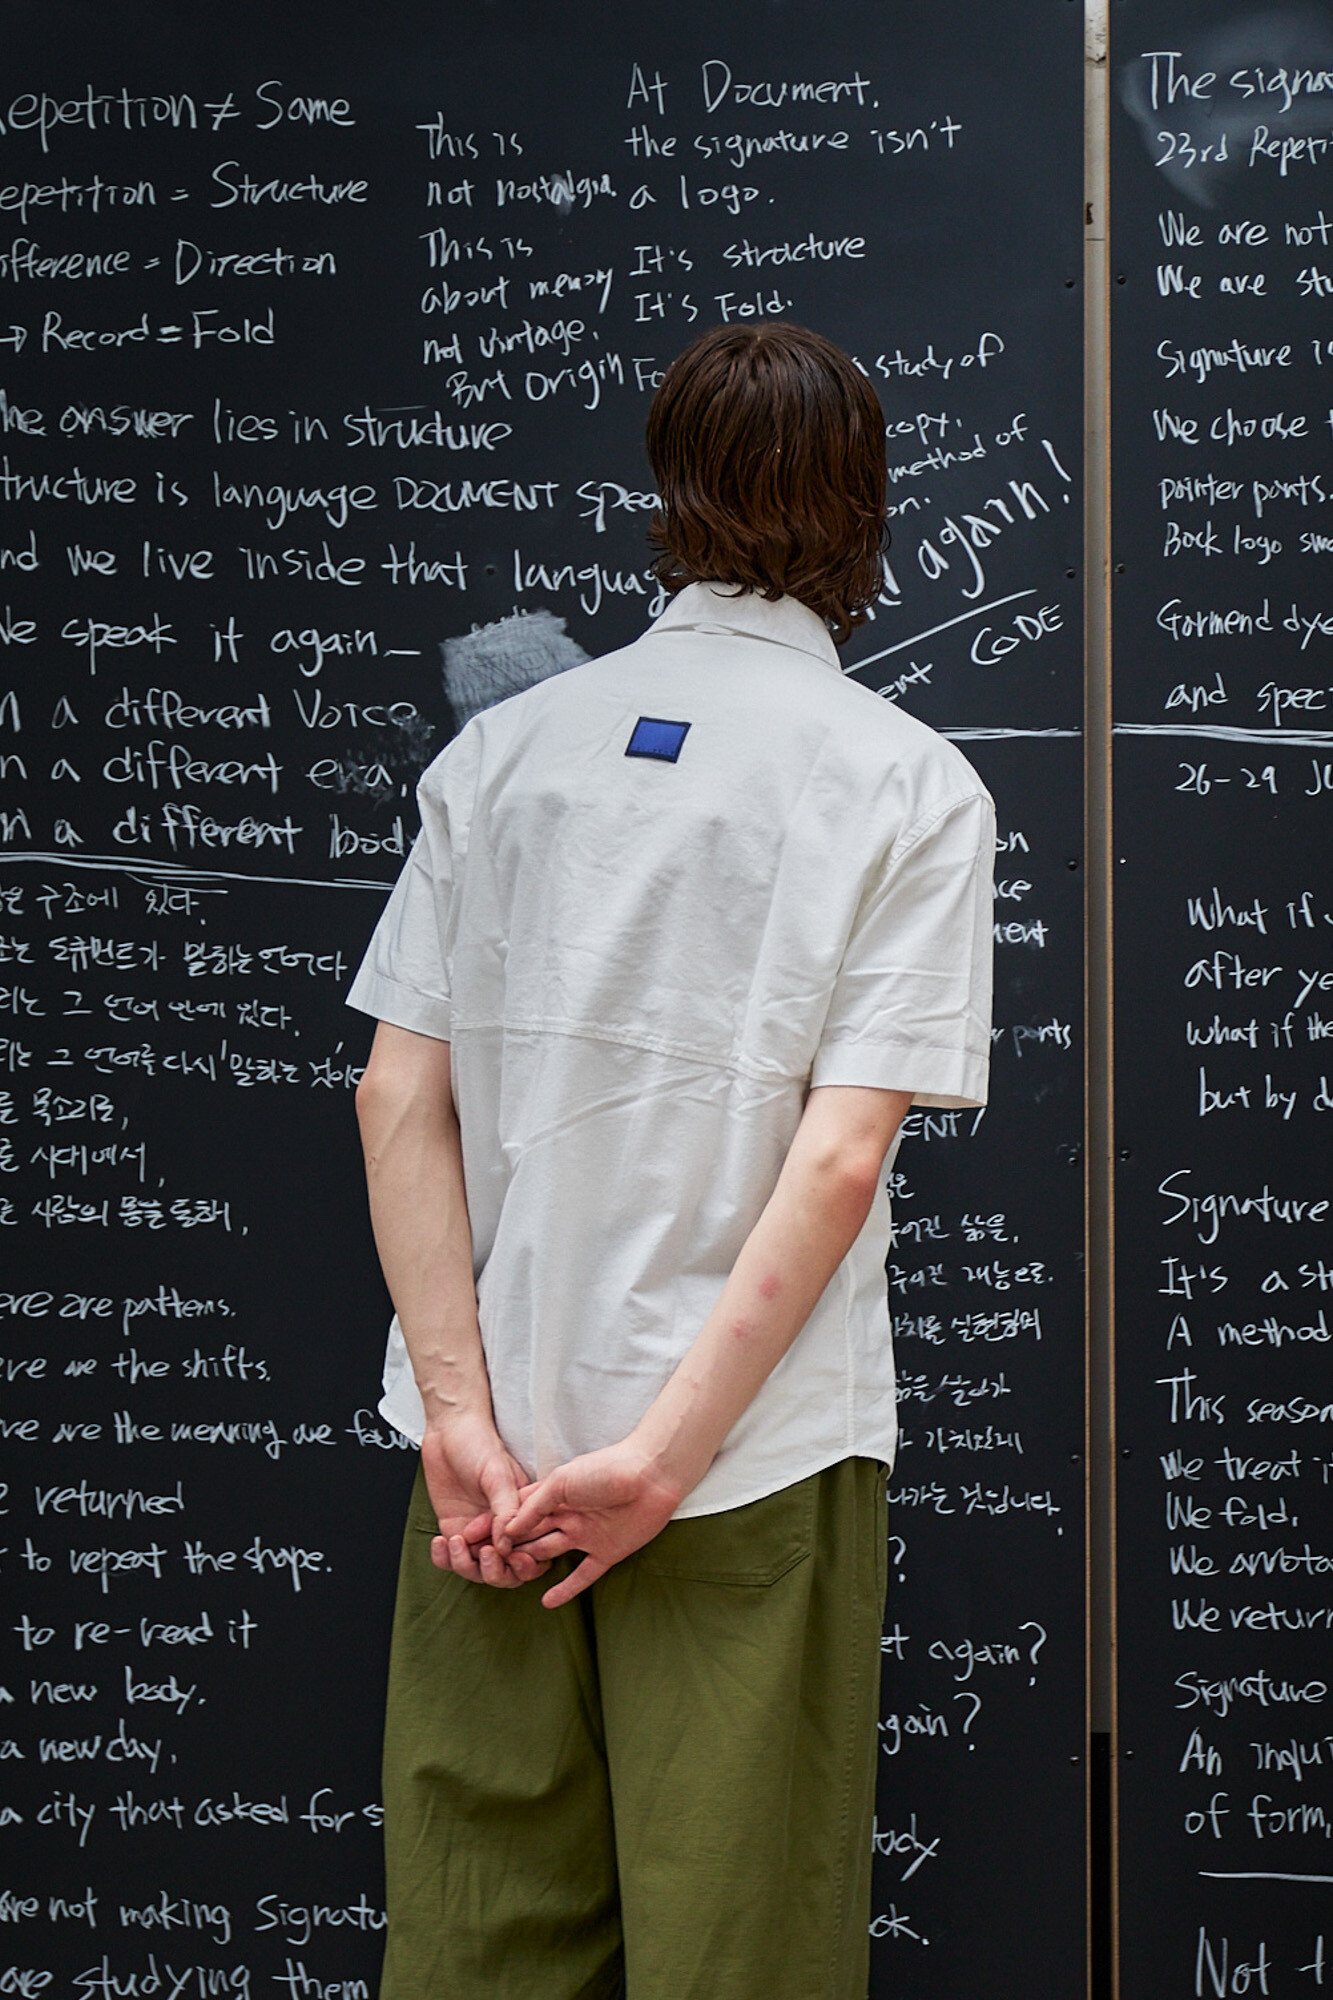 epetition ≠ Same
epetition = Structure
ifference = Direction
→ Record = Fold
he answer lies in structure
tructure is language DOCUMENT spea
nd we live inside that languag
We speak it again_
n a different Voice
n a different era,
n a different bod
This is
not nostalgia.
This is
about memory
not vintage.
But Origin
At Document.
the signature isn't
a logo.
It's structure
It's Fold.
Fo
study of
copy.
method of
on.
again!
ent CODE
은 구조에 있다.
는 도큐먼트가 말하는 언어다
리는 그 언어 안에 있다.
리는 그 언어를 다시 '말하는 것'이다
른 목소리로,
른 시대에서,
른 사람의 몸을 통해,
ere are patterns.
ere are the shifts.
re are the meaning we foun
e returned
t to repeat the shape.
to re-read it
a new body.
a new day.
a city that asked for s
are not making Signatu
are studying them
on
ce
ment
r ponts
ENT!
은
주어진 삶을,
주어진 재능으로.
가치를 실현하며
삶을 살아가
가치있게
나가는 것입니다.
?
et again?
gain?
body
ck.
The signa
23rd Repeti
We are not
We are stu
Signature is
We choose t
pointer ponts.
Back logo sm
Garmend dye
and spec
26-29 JU
What if
after ye
what if the
but by d
Signature
It's a st
A method
This season
We treat it
We fold.
We annota
We return
Signature
An inqui
of form,
Not t